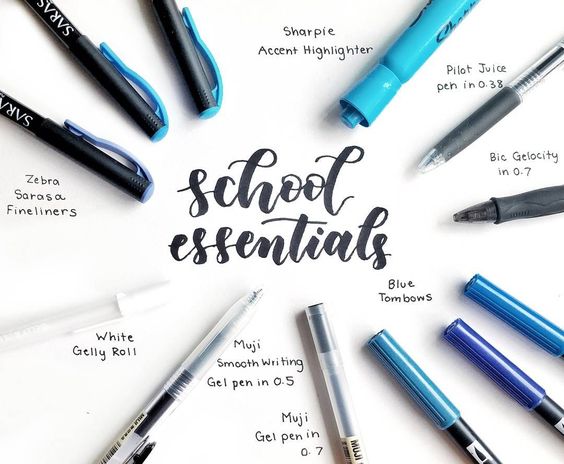 SARAS
SARASA
SARAS
Sharpie
Accent Highlighter
Pilot Juice
pen in 0.38
Bic Gelocity
in 0.7
Zebra
Sarasa
Fineliners
school
essentials
Blue
Tombows
White
Gelly Roll
Muji
Smooth Writing
Gel pen in 0.5
Muji
Gel pen in
0.7
MUJI
MUJI